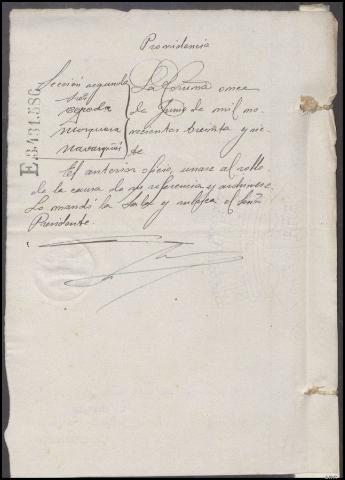 Providencia
Sección segunda
Sres
Cepeda
Mosquera
La Coruña once
de Junio de mil no-
vecientos treinta y sie-
te.
El anterior oficio, unase al rollo
de la causa de su referencia y
Lo mandó la Sala y rubrica el Señor
Presidente.
E3.431.586